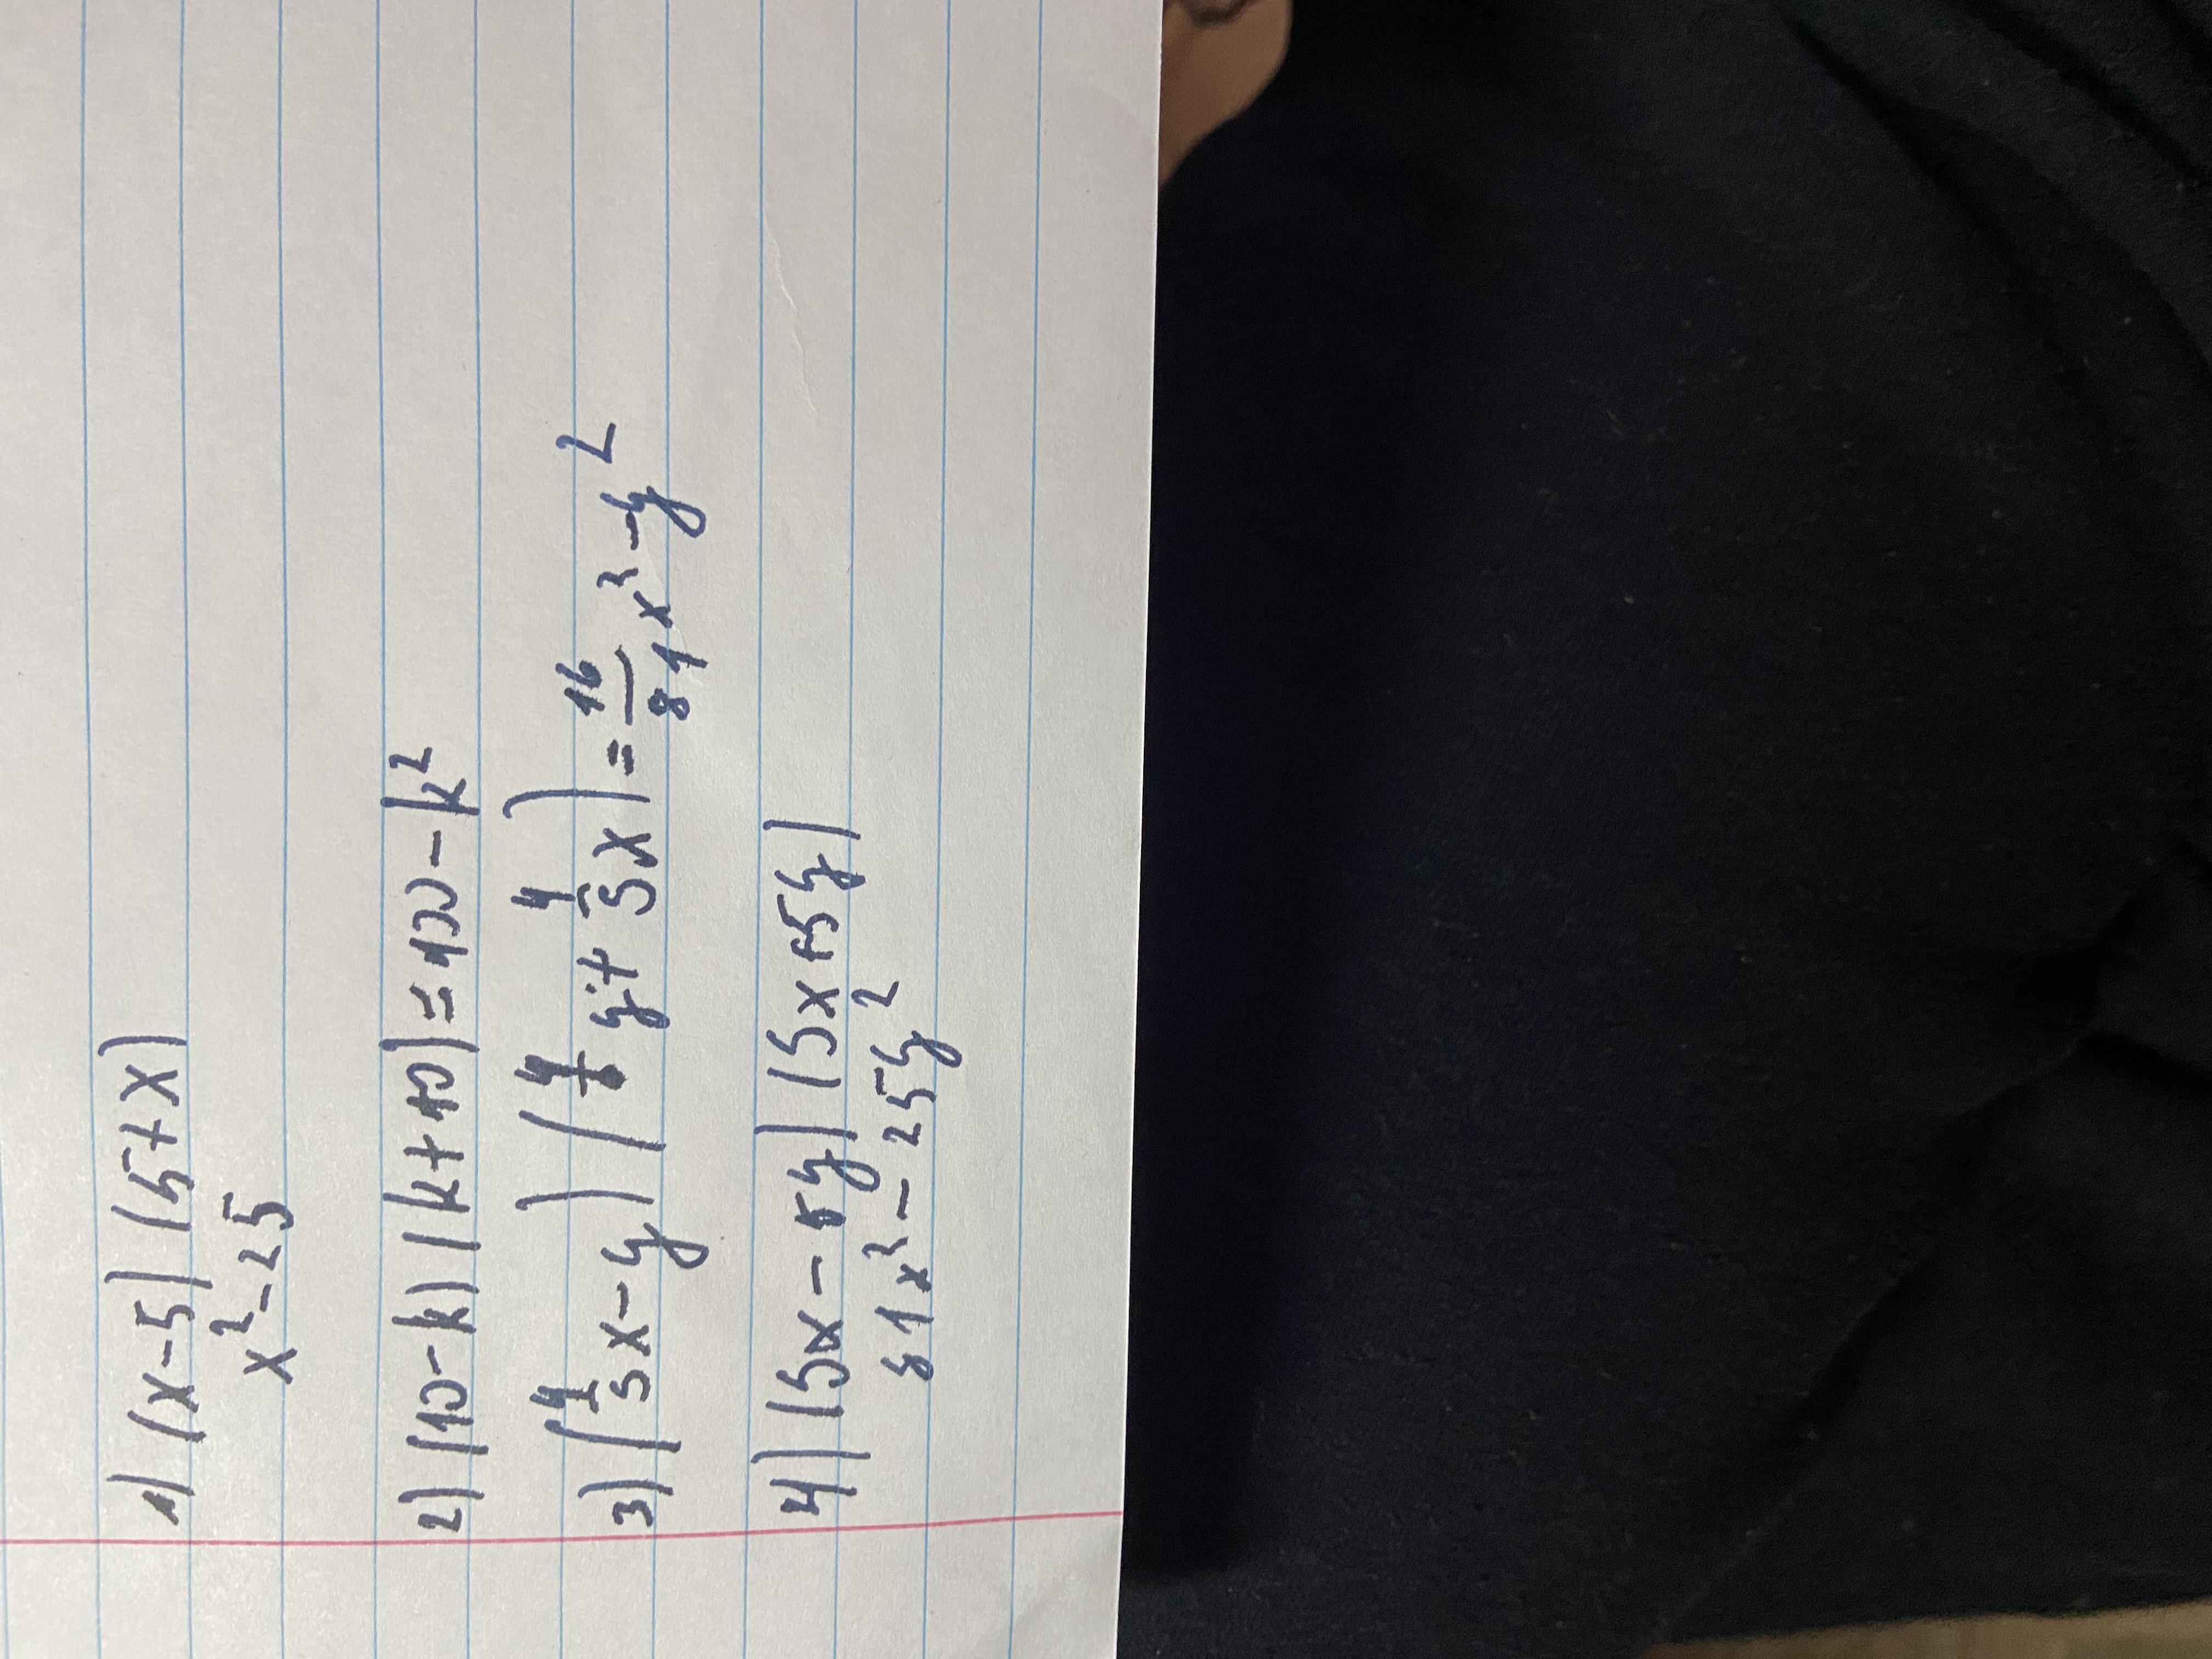 1) (x-5) (5+x)
x²-25
2) (10-k) (k+10) = 100-k²
3) (4/9x-y) (y+4/9x) = 16/81x²-y²
4) (9x-5y) (9x+5y)
81x²-25y²